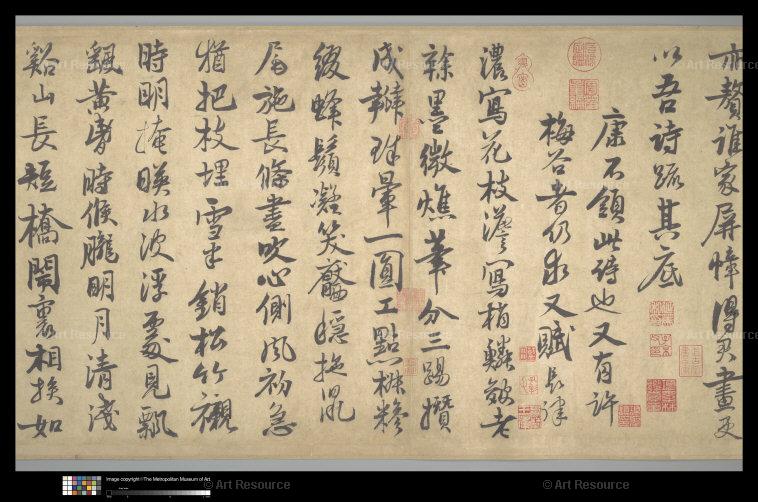 亦贅誰家屏幛得君畫更
以吾詩疏其底
康不領此詩也又有許
梅谷者仍求又賦長律
濃寫花枝澹寫梢鱗皴老
榦墨微燋筆分三踢攢
成瓣珠暈一圓工點椒糝
綴蜂鬚凝笑靨穩拖鼠
尾施長條盡吹心側風初急
猶把枝埋雪半銷松竹襯
時明掩映水波浮處見飄
飄黃昏時候朧明月清淺
谿山長短橋鬧裏相挨如
Image copyright © The Metropolitan Museum of Art
© Art Resource
© Art Resource